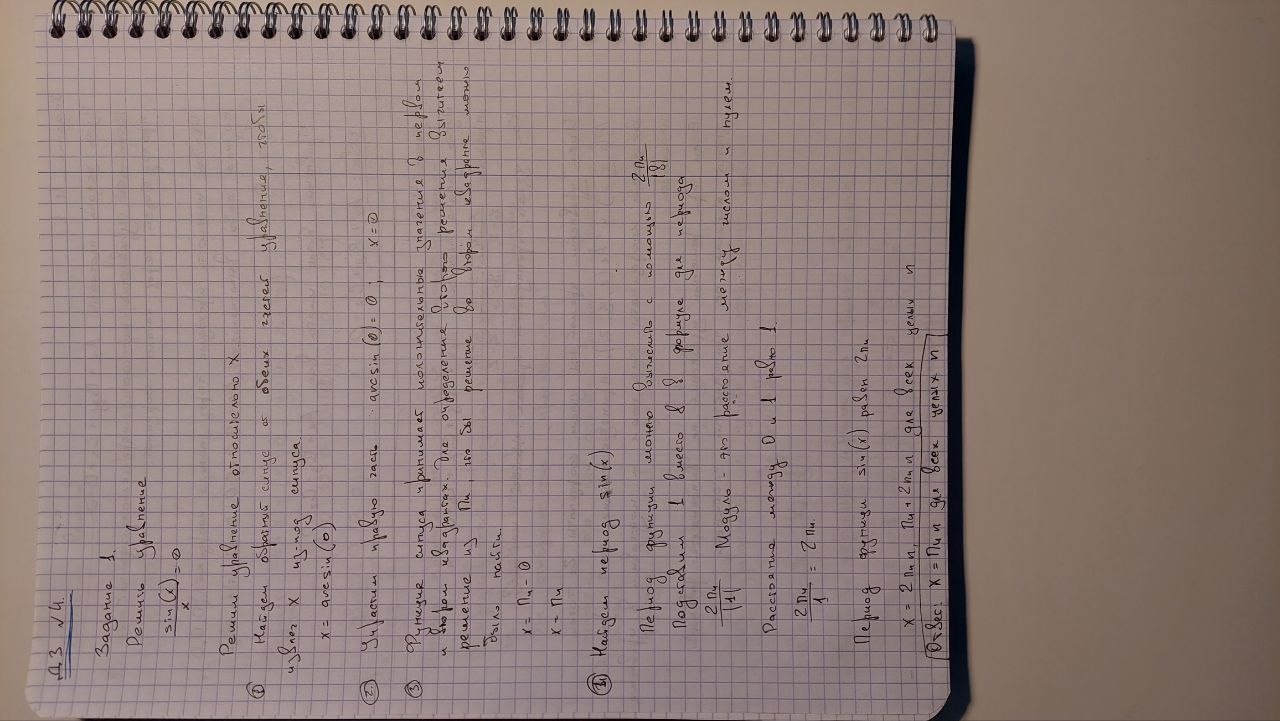 ДЗ №4.
Задание 1.
Решить уравнение
sin(x)/x = 0
Решим уравнение относительно X.
① Найдем обратный синус от обеих частей уравнения, чтобы
извлеч X из-под синуса.
x = arcsin(0)
② Упрастим правую часть arcsin(0) = 0; x = 0
③ Функция синуса принимает положительные значения в первом
и втором квадрантах. Для определения второго решения вычитаем
решение из Пи, что бы решение во втором квадранте можно
было найти.
x = Пи - 0
x = Пи
Найдем период sin(x)
Период функции можно вычислить с помощью 2Пи/|в|
Подставим 1 вместо в в формуле для периода
2Пи/|1| Модуль - это расстояние между числом и нулем.
Расстояние между 0 и 1 равно 1.
2Пи/1 = 2Пи.
Период функци sin(x) равен 2пи
x = 2Пи n, Пи + 2пи n для всех целых n
Ответ: x = Пи n для всех целых n